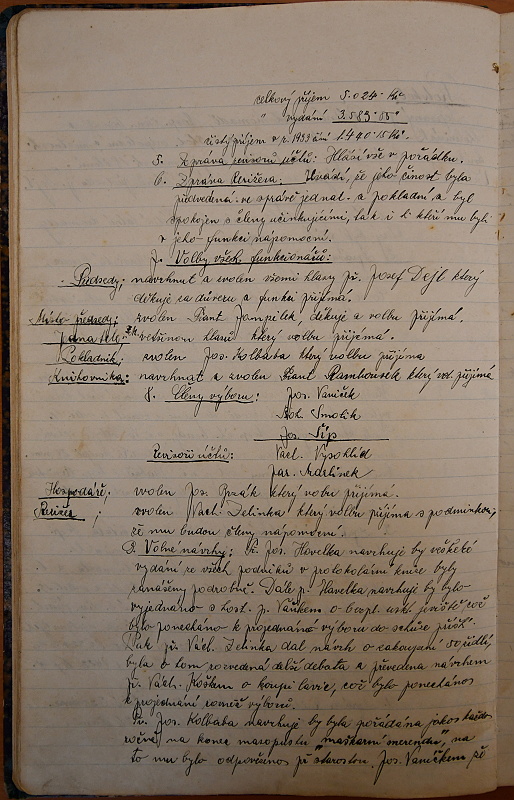 celkový příjem 5.024·- Kč
" vydání 3.583·85
čistý příjem v r. 1933 činí 1.440·15 Kč.
5. Zpráva revisorů účtů: Hlásí vše v pořádku.
6. Zpráva Režiséra: Uvádí, že jeho činost byla
předvedena ve zprávě jednat. a pokladní a byl
spokojen s členy učinkujícími, tak i s těmi kteří mu byli
v jeho funkci nápomocni.
7. Volby všech funkcionářů:
Předsedy: navrhnut a zvolen všemi hlasy př. Josef Dejl který
děkuje za důvěru a funkci přijímá.
Místo předsedy: zvolen Frant. děkuje a volbu přijímá.
Jednatele: většinou hlasů který volbu přijímá.
Pokladník: zvolen Jos. Kolbaba který volbu přijímá
Knihovníka: navrhnut a zvolen Frant. Rambousek který vol. přijímá
8. Členy výboru: Jos. Vaníček
Boh. Smolík
Jos. Šíp
Revisoři účtů: Václ. Vysohlíd
Jar. Medlínek
Hospodáře: zvolen Jos. který volbu přijímá.
Režiséra: zvolen Václ. Jelinka který volbu přijímá s podmínkou,
že mu budou členy nápomocni.
9. Volné návrhy: Př. Jos. Havelka navrhuje by veškeré
vydání ze všech podniků v protokolární knize byly
zanášeny podrobně. Dále p. Havelka navrhuje by bylo
vyjednáno s host. p. Vaňkem o bezpl. jeviště což
bylo ponecháno k projednání výboru do schůze příšt.
Pak př. Václ. Jelinka dal návrh o zakoupení 50 židlí,
byla o tom rozvedena delší debata a převedena návrhem
př. Václ. Koškem o koupi lavic, což bylo ponecháno
k projednání rovněž výborů.
Př. Jos. Kolbaba navrhuje by byla pořádána jako každo
ročně, na konec masopustu "maškarní merenda", na
to mu bylo odpověděno př. starostou. Jos. Vaníčkem že